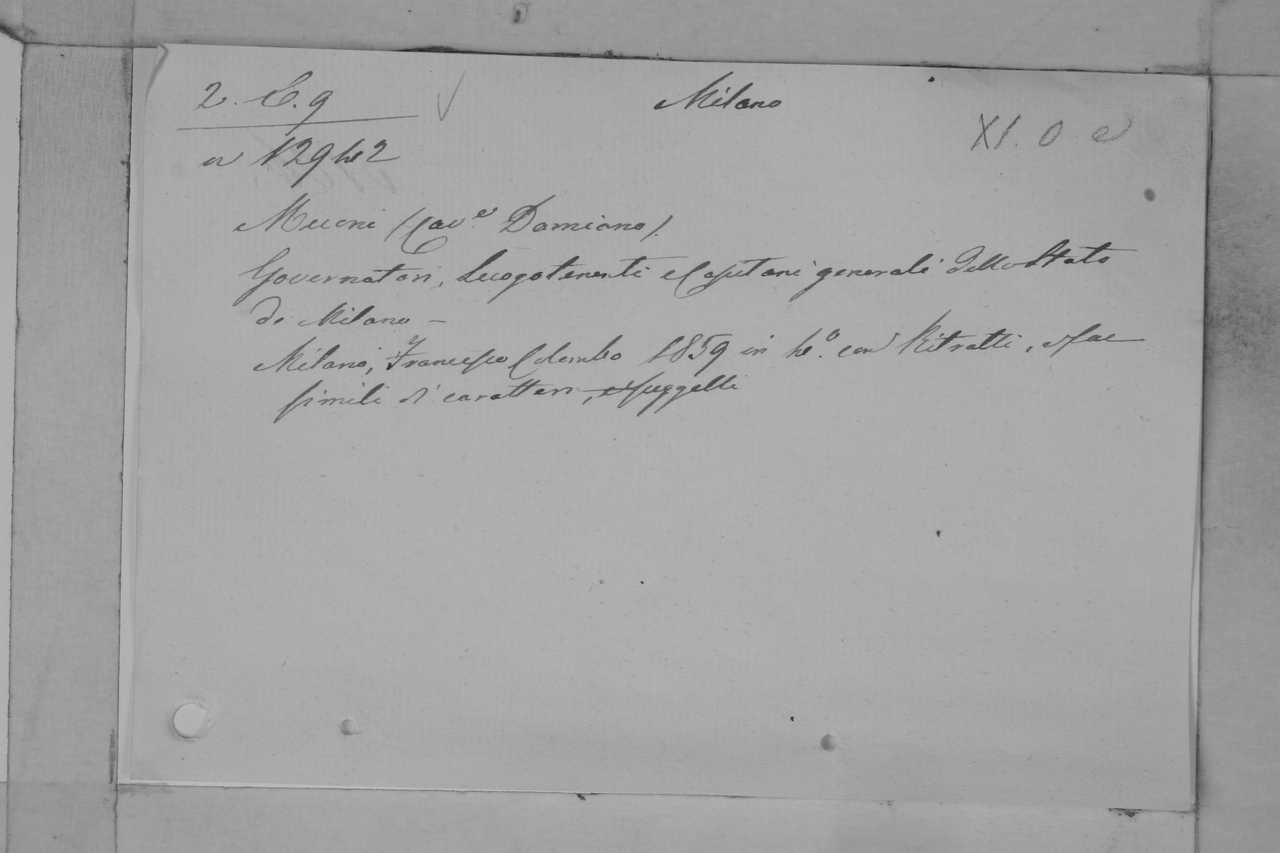 2. C. 9
Milano
XI. 0. e
a 129 to 2
Muoni (Cav.e Damiano).
Governatori, Luogotenenti e Capitani generali dello Stato
di Milano –
Milano, Francesco Colombo 1859 in 4o. con Ritratti, e fac
simili di caratteri, e suggelli